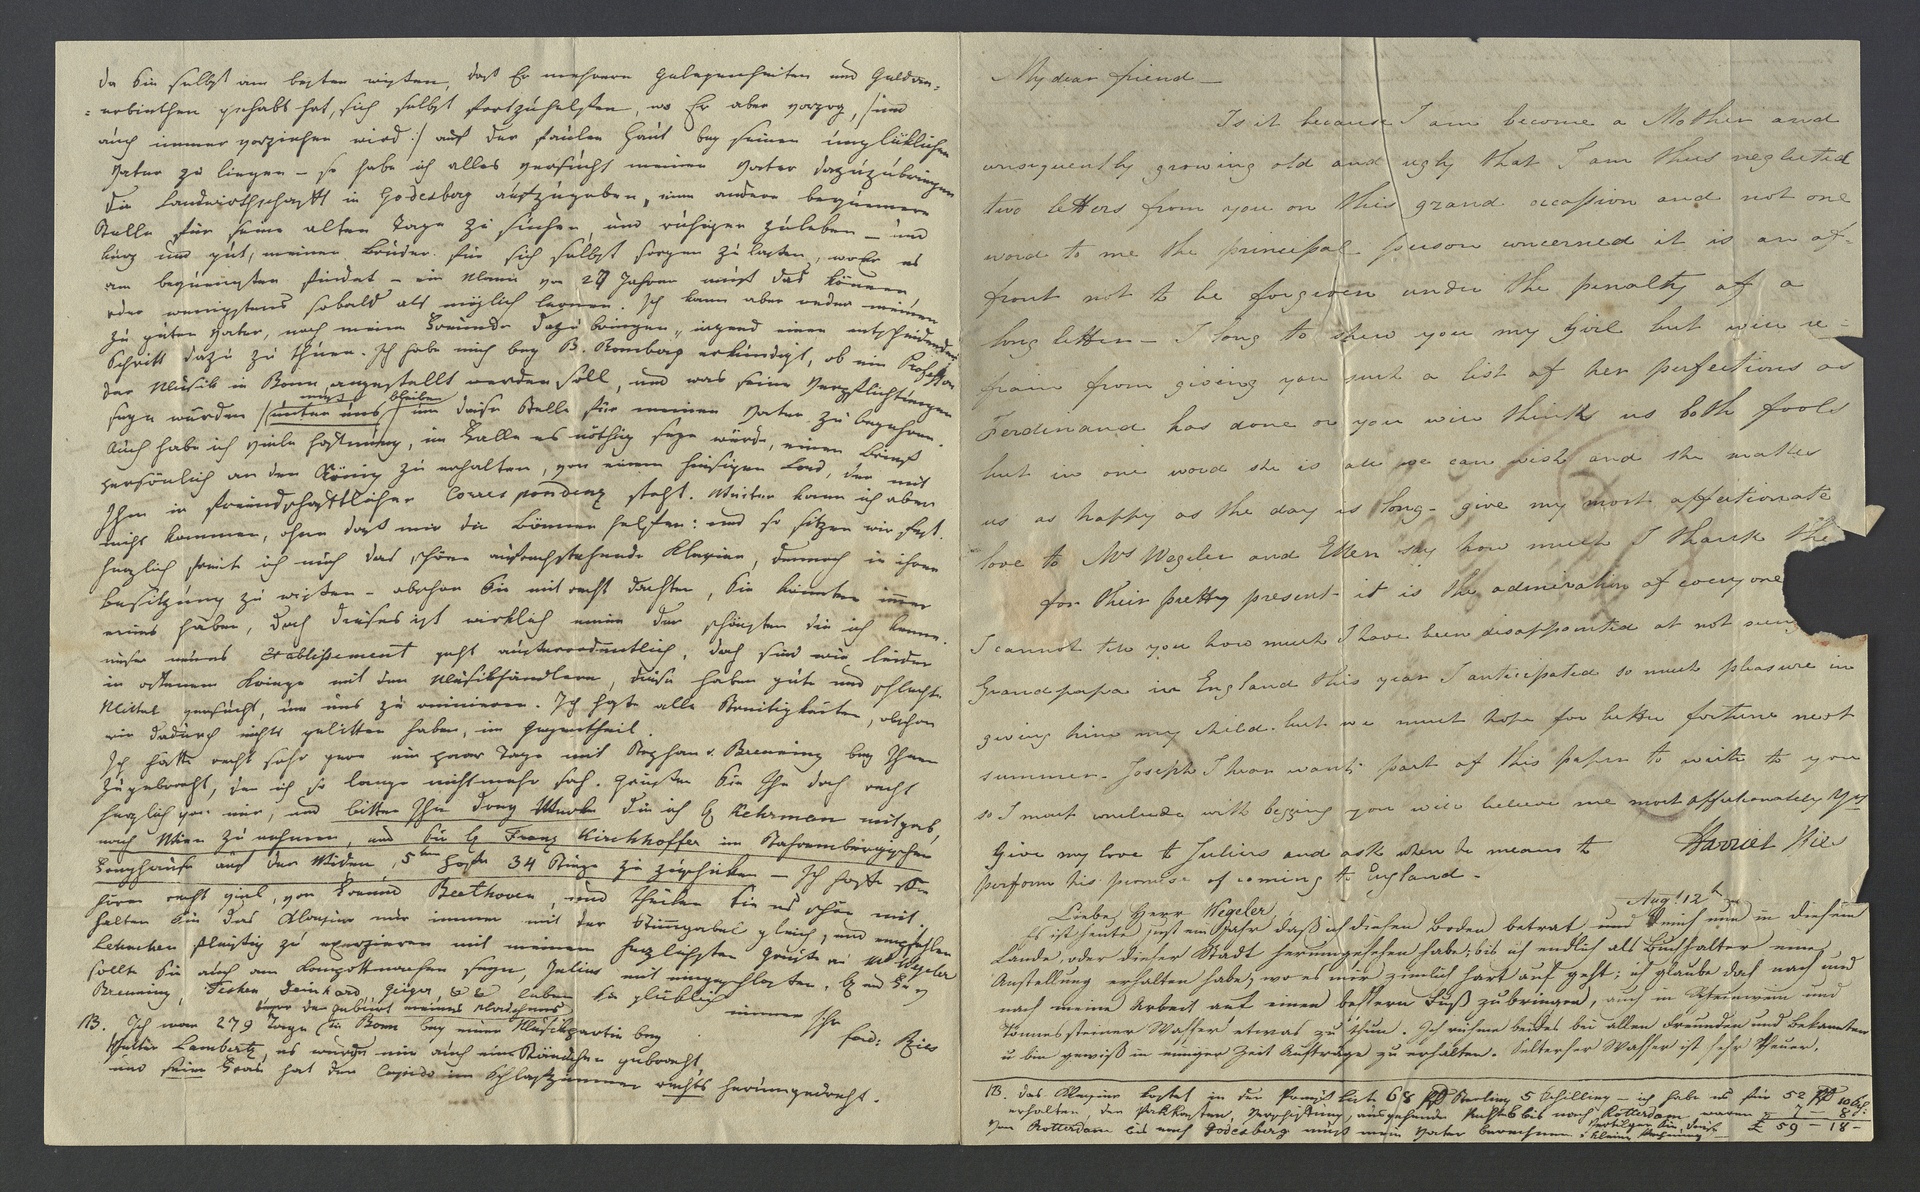 da Sie selbst am besten wißen, daß Er mehrere Gelegenheiten und Geldan-
=erbiethen gehabt hat, sich selbst fortzuhelfen, wo Er aber vorzog, /: und
auch immer vorziehen wird :/ auf der faulen Haut bey seinem unglüklichen
Vater zu liegen – so habe ich alles versucht meinen Vater dazuzubringen
die Landwirthschafft in Godesberg aufzugeben, eine andere bequemere
Stelle für seine alten Tage zu suchen, und ruhiger zu leben – und
kurz und gut, meinen Bruder für sich selbst sorgen zu laßen, wo Er es
am bequemsten findet – ein Mann von 27 Jahren muß das können
oder wenigstens sobald als möglich lernen. Ich kann aber weder meinen
zu guten Vater, noch meine Freunde dazu bringen, irgend einen entscheidenden
Schritt dazu zu thun. Ich habe mich bey B. Romberg erkundigt, ob ein Professor
der Musik in Bonn angestellt werden soll, und was seine Verpflichtungen
seyn würden /: unter uns muß bleiben :/ um diese Stelle für meinen Vater zu begehren.
Auch habe ich viele Hoffnung, im Falle es nöthig seyn würde, einen Brief
persönlich an den König zu erhalten, von einem hiesigen Lord, der mit
Ihm in freundschafftlicher Correspondenz steht. Weiter kann ich aber
nicht kommen, ohne daß mir die Bönner helfen: und so sitzen wir fest.
herzlich freute ich mich das schöne aufrechtstehende Klavier, dennoch in ihrer
Besitzung zu wißen – obschon Sie mit recht dachten, Sie könnten immer
eines haben, doch dieses ist wirklich eines der schönsten die ich kenne.
unser neues Etablißement geht außerordentlich, doch sind wir leider
in offenem Kriege mit den Musikhändlern, diese haben gute und schlechte
Mittel versucht, um uns zu ruiniren. Ich haße alle Streitigkeiten, obschon
wir dadurch nichts gelitten haben, im Gegentheil.
Ich hätte recht sehr gern ein paar Tage mit Stephan v. Breuning bey Ihnen
zugebracht, den ich so lange nicht mehr sah. Grüßen Sie Ihn doch recht
herzlich von mir, und bitten Ihn drey Werke die ich H Kehrman mitgab,
nach Wien zu nehmen, und sie H Franz Kirchhoffer im Stahrembergischen
Freyhause auf der Wieden, 5ten Hofe 34 Stiege zu zuschicken – Ich hoffe Sie
hören recht viel, von Freund Beethoven, und theilen Sie es schön mit.
halten Sie das Klavier nur immer mit der Stimmgabel gleich, und empfehlen
Lehnchen fleißig zu exerzieren mit meinem herzlichsten Gruße an Md Wegeler
sollte Sie auch am Kompottmachen seyn, Julius mit eingeschloßen, H und Frau
Breuning, Deinhard
leben Sie glücklich
immer Ihr
Ferd: Ries
NB. Ich war 279 Tage vor der Geburt meines Mädchens in Bonn bey einer Musikpartie bey
Walter Lambertz, es wurde mir auch ein Ständchen gebracht,
und seine Frau hat den Cupido im Schlafzimmer rechts herumgedreht.
My dear friend –
Is it because I am become a Mother and
consequently growing old and ugly that I am thus neglected
two letters from you on this grand occassion and not one
word to me the principal person concerned it is an af-
front not to be forgiven under the penalty of a
long letter – I long to shew you my Girl but will re-
frain from giving you such a list of her perfections as
Ferdinand has done or you will think us both fools
but in one word she is all we can wish and she makes
us as happy as the day is long – give my most affectionate
love to Mrs Wegeler and Ellen say how much I thank the
for their pretty present it is the admiration of everyone
I cannot tell you how much I have been disappointed at not seeing
Grandpapa in England this year I anticipated so much pleasure in
giving him my child. but we must hope for better fortune next
summer – Joseph I hear wants part of this paper to write to you
so I must conclude with begging you will believe me most affectionately Yrs
Harriet Ries
Give my love to Julius and ask when he means to
perform his promise of coming to England –
Augt 12th
Lieber Herr Wegeler
Es ist heute just ein Jahr daß ich diesen Boden betrat und mich nun in diesem
Lande, oder dieser Stadt herumgesehen habe; bis ich endlich als Buchhalter eine
Anstellung erhalten habe, wo es mir zimlich hart auf geht; ich glaube doch nach und
nach meine Arbeit auf einen bessern Fuß zu bringen, auch in Rheinwein und
Tönnessteiner Wasser etwas zu thun. Ich rühme beides bei allen Freunden und Bekannten
u. bin gewiß in einiger Zeit Aufträge zu erhalten. Selterser Wasser ist sehr theuer.
NB. das Klavier kostet in der Preis liste 68 Pf Sterling 5 Schilling – ich habe es für 52 Pf 10 Sch:
erhalten, den Packkasten, Verschiffung, ausgehende Rechte bis nach Rotterdam, waren £ 7 – 8
Von Rotterdam bis nach Godesberg muß mein Vater berechnen £ 59 – 18 –
kleine Rechnung